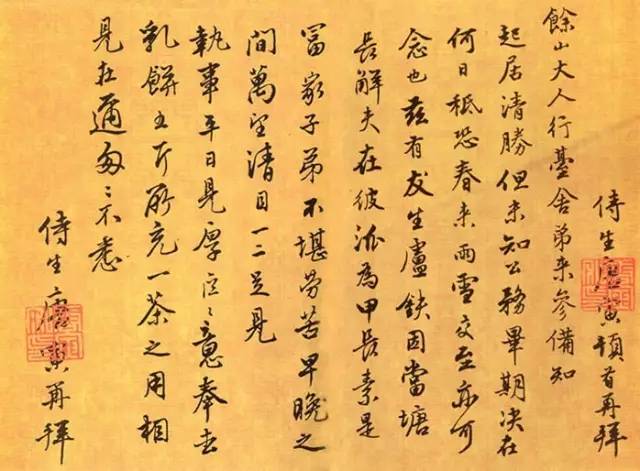 侍生唐寅頓首再拜
餘山大人行臺舍弟來參備知
起居清勝但未知公務畢期決在
何日秪恐春來雨雪交至亦可
念也茲有友生盧鈇因當塘
長解夫在彼派為甲長素是
冨家子弟不堪勞苦早晚之
間萬望清目一二足見
執事平日見厚意奉去
乳餅五斤所充一茶之用相
見在邇匆〻不悉
侍生唐寅再拜